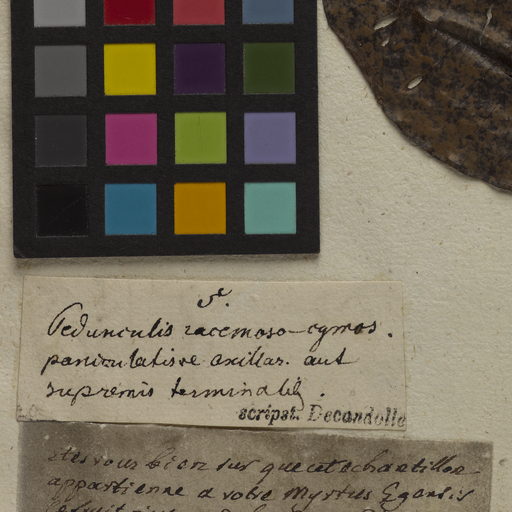 5.
Pedunculis racemoso-cymos.
paniculatisve axillar. aut
supremis terminalib.
scripst. Decandolle
etes vous bien sur que cet echantillon
appartienne a votre Myrtus Egensis